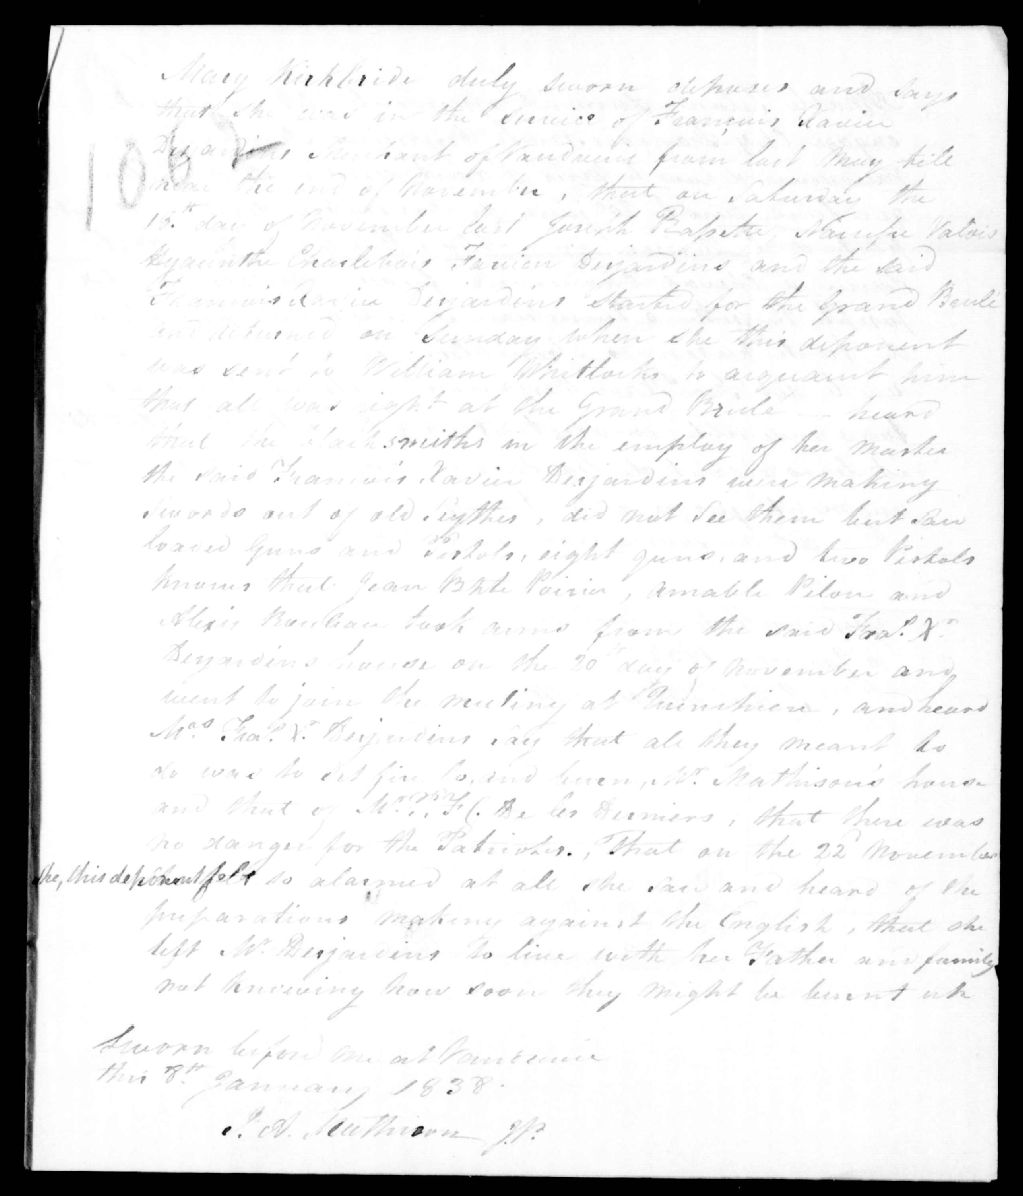 Mary Kirkbride duly sworn deposes and says
that she was in the service of François Xavier
Desjardins Merchant of Vaudreuil from last May till
near the end of November, that on Saturday the
day of November last Joseph Narcisse Valois
Hyacinthe Charlebois Desjardins and the said
François Xavier Desjardins started for the Grand Brulé
and returned on Sunday when she this deponent
was sent to William Whitlocks to acquaint him
that all was right at the Grand Brulé — heard
that the blacksmiths in the employ of her master
the said Francois Xavier Desjardins were making
Swords out of old Scythes, did not see them but saw
loaded Guns and Pistols, eight guns, and two Pistols
knows that Jean Bpte Poirier, Amable Pilon and
Alexis took arms from the said Fra.s X.r
Desjardins house on the 20th day of November and
went to join the meeting at, and heard
Mrs Fra.s X.r Desjardins say that all they meant to
do was to set fire to, and burn, Mr. Mathison's house
and that of Mr. De les Derniers, that there was
no danger for the Patriotes, That on the 22d November
she, this deponent felt so alarmed at all she saw and heard of the
preparations making against the English, that she
left Mr Desjardins to live with her Father and family
not knowing how soon they might be burnt up
Sworn before me at Vaudreuil
this 8th January 1838.
J. A. Mathison J.P.
106